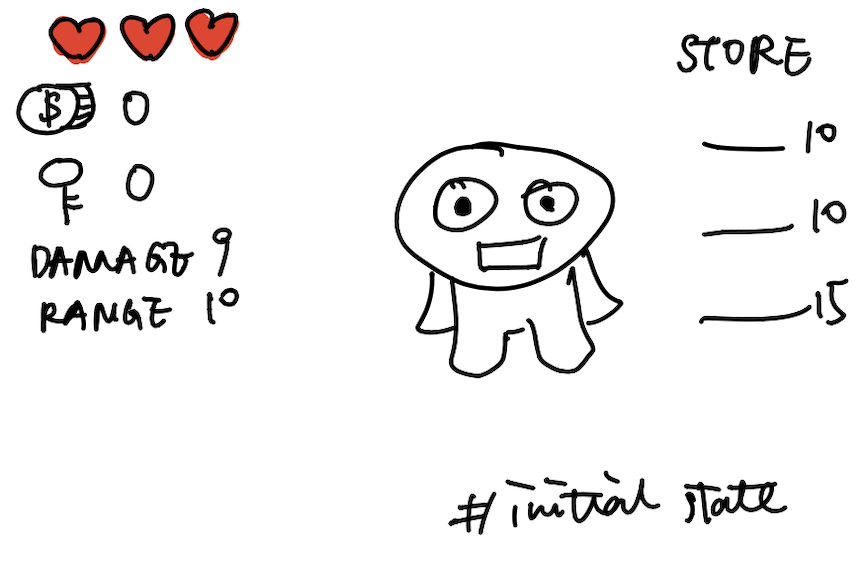 $ 0
0
DAMAGE 9
RANGE 10
STORE
10
10
15
#initial state